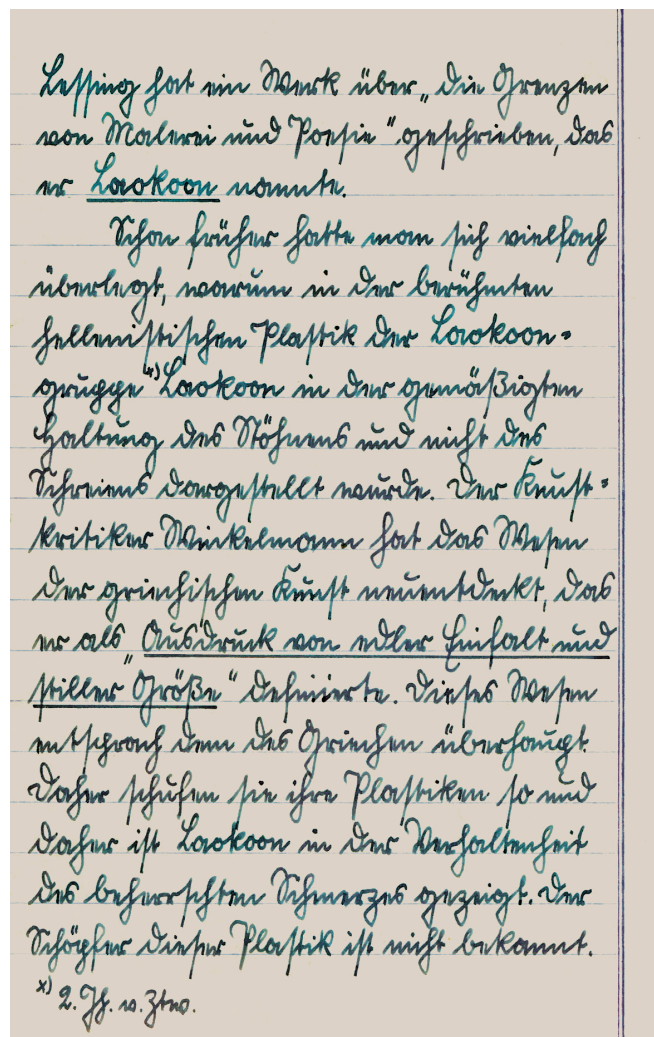 Lessing hat ein Werk über „die Grenzen
von Malerei und Poesie" geschrieben, das
er Laokoon nannte.
Schon früher hatte man sich vielfach
überlegt, warum in der berühmten
hellenistischen Plastik der Laokoon-
gruppe x) Laokoon in der gemäßigten
Haltung des Stöhnens und nicht des
Schreiens dargestellt wurde. Der Kunst-
kritiker Winkelmann hat das Wesen
der griechischen Kunst neuentdeckt, das
er als „Ausdruck von edler Einfalt und
stiller Größe" definierte. Dieses Wesen
entsprach dem des Griechen überhaupt.
Daher schufen sie ihre Plastiken so und
daher ist Laokoon in der Verhaltenheit
des beherrschten Schmerzes gezeigt. Der
Schöpfer dieser Plastik ist nicht bekannt.
x) 2. Jh. v. Ztw.